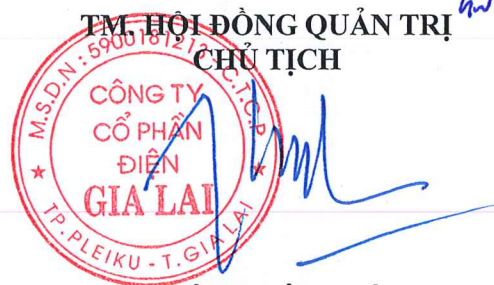 TM. HỘI ĐỒNG QUẢN TRỊ
CHỦ TỊCH
M.S.D.N: 5900181213 - C.T.C.P
CÔNG TY
CỔ PHẦN
ĐIỆN
GIA LAI
TP. PLEIKU - T. GIA LAI